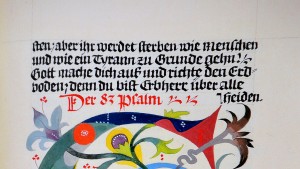 sten, aber ihr werdet sterben wie menschen
und wie ein Tyrann zu Grunde gehn
Gott mache dich auf und richte den Erd-
boden; denn du bist Erbherr über alle
Der 83 Psalm Heiden.